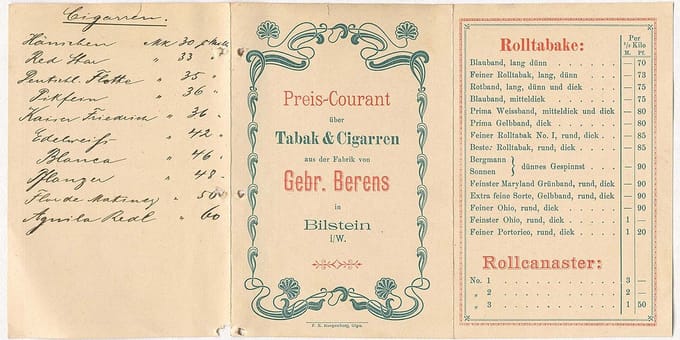 Cigarren.
Hänschen Mk 30 p Mille
Red Star " 33 "
Deutschl. Flotte " 35 "
Pikfein " 36 "
Kaiser Friedrich " 36 "
Edelweiß " 42 "
Blanca " 46 "
Pflanzer " 48 "
Flor de Matinez " 50
Aguila Redl " 60
Preis-Courant
über
Tabak & Cigarren
aus der Fabrik von
Gebr. Berens
in
Bilstein
i/W.
Rolltabake:
Per
½ Kilo
M. Pf.
Blauband, lang dünn . . . . . — 70
Feiner Rolltabak, lang, dünn . . . — 73
Rotband, lang, dünn und dick . . . — 75
Blauband, mitteldick . . . . . — 75
Prima Weissband, mitteldick und dick — 80
Prima Gelbband, dick . . . . . — 80
Feiner Rolltabak No. I, rund, dick . . — 85
Bester Rolltabak, rund, dick . . . — 85
Bergmann
Sonnen } dünnes Gespinnst . . . — 90
Feinster Maryland Grünband, rund, dick — 90
Extra feine Sorte, Gelbband, rund, dick — 90
Feiner Ohio, rund, dick . . . . . — 90
Feinster Ohio, rund, dick . . . . 1 —
Feiner Portorico, rund, dick . . . . 1 20
Rollcanaster:
No. 1 . . . . . . . . . 3 —
„ 2 . . . . . . . . . 2 —
„ 3 . . . . . . . . . 1 50